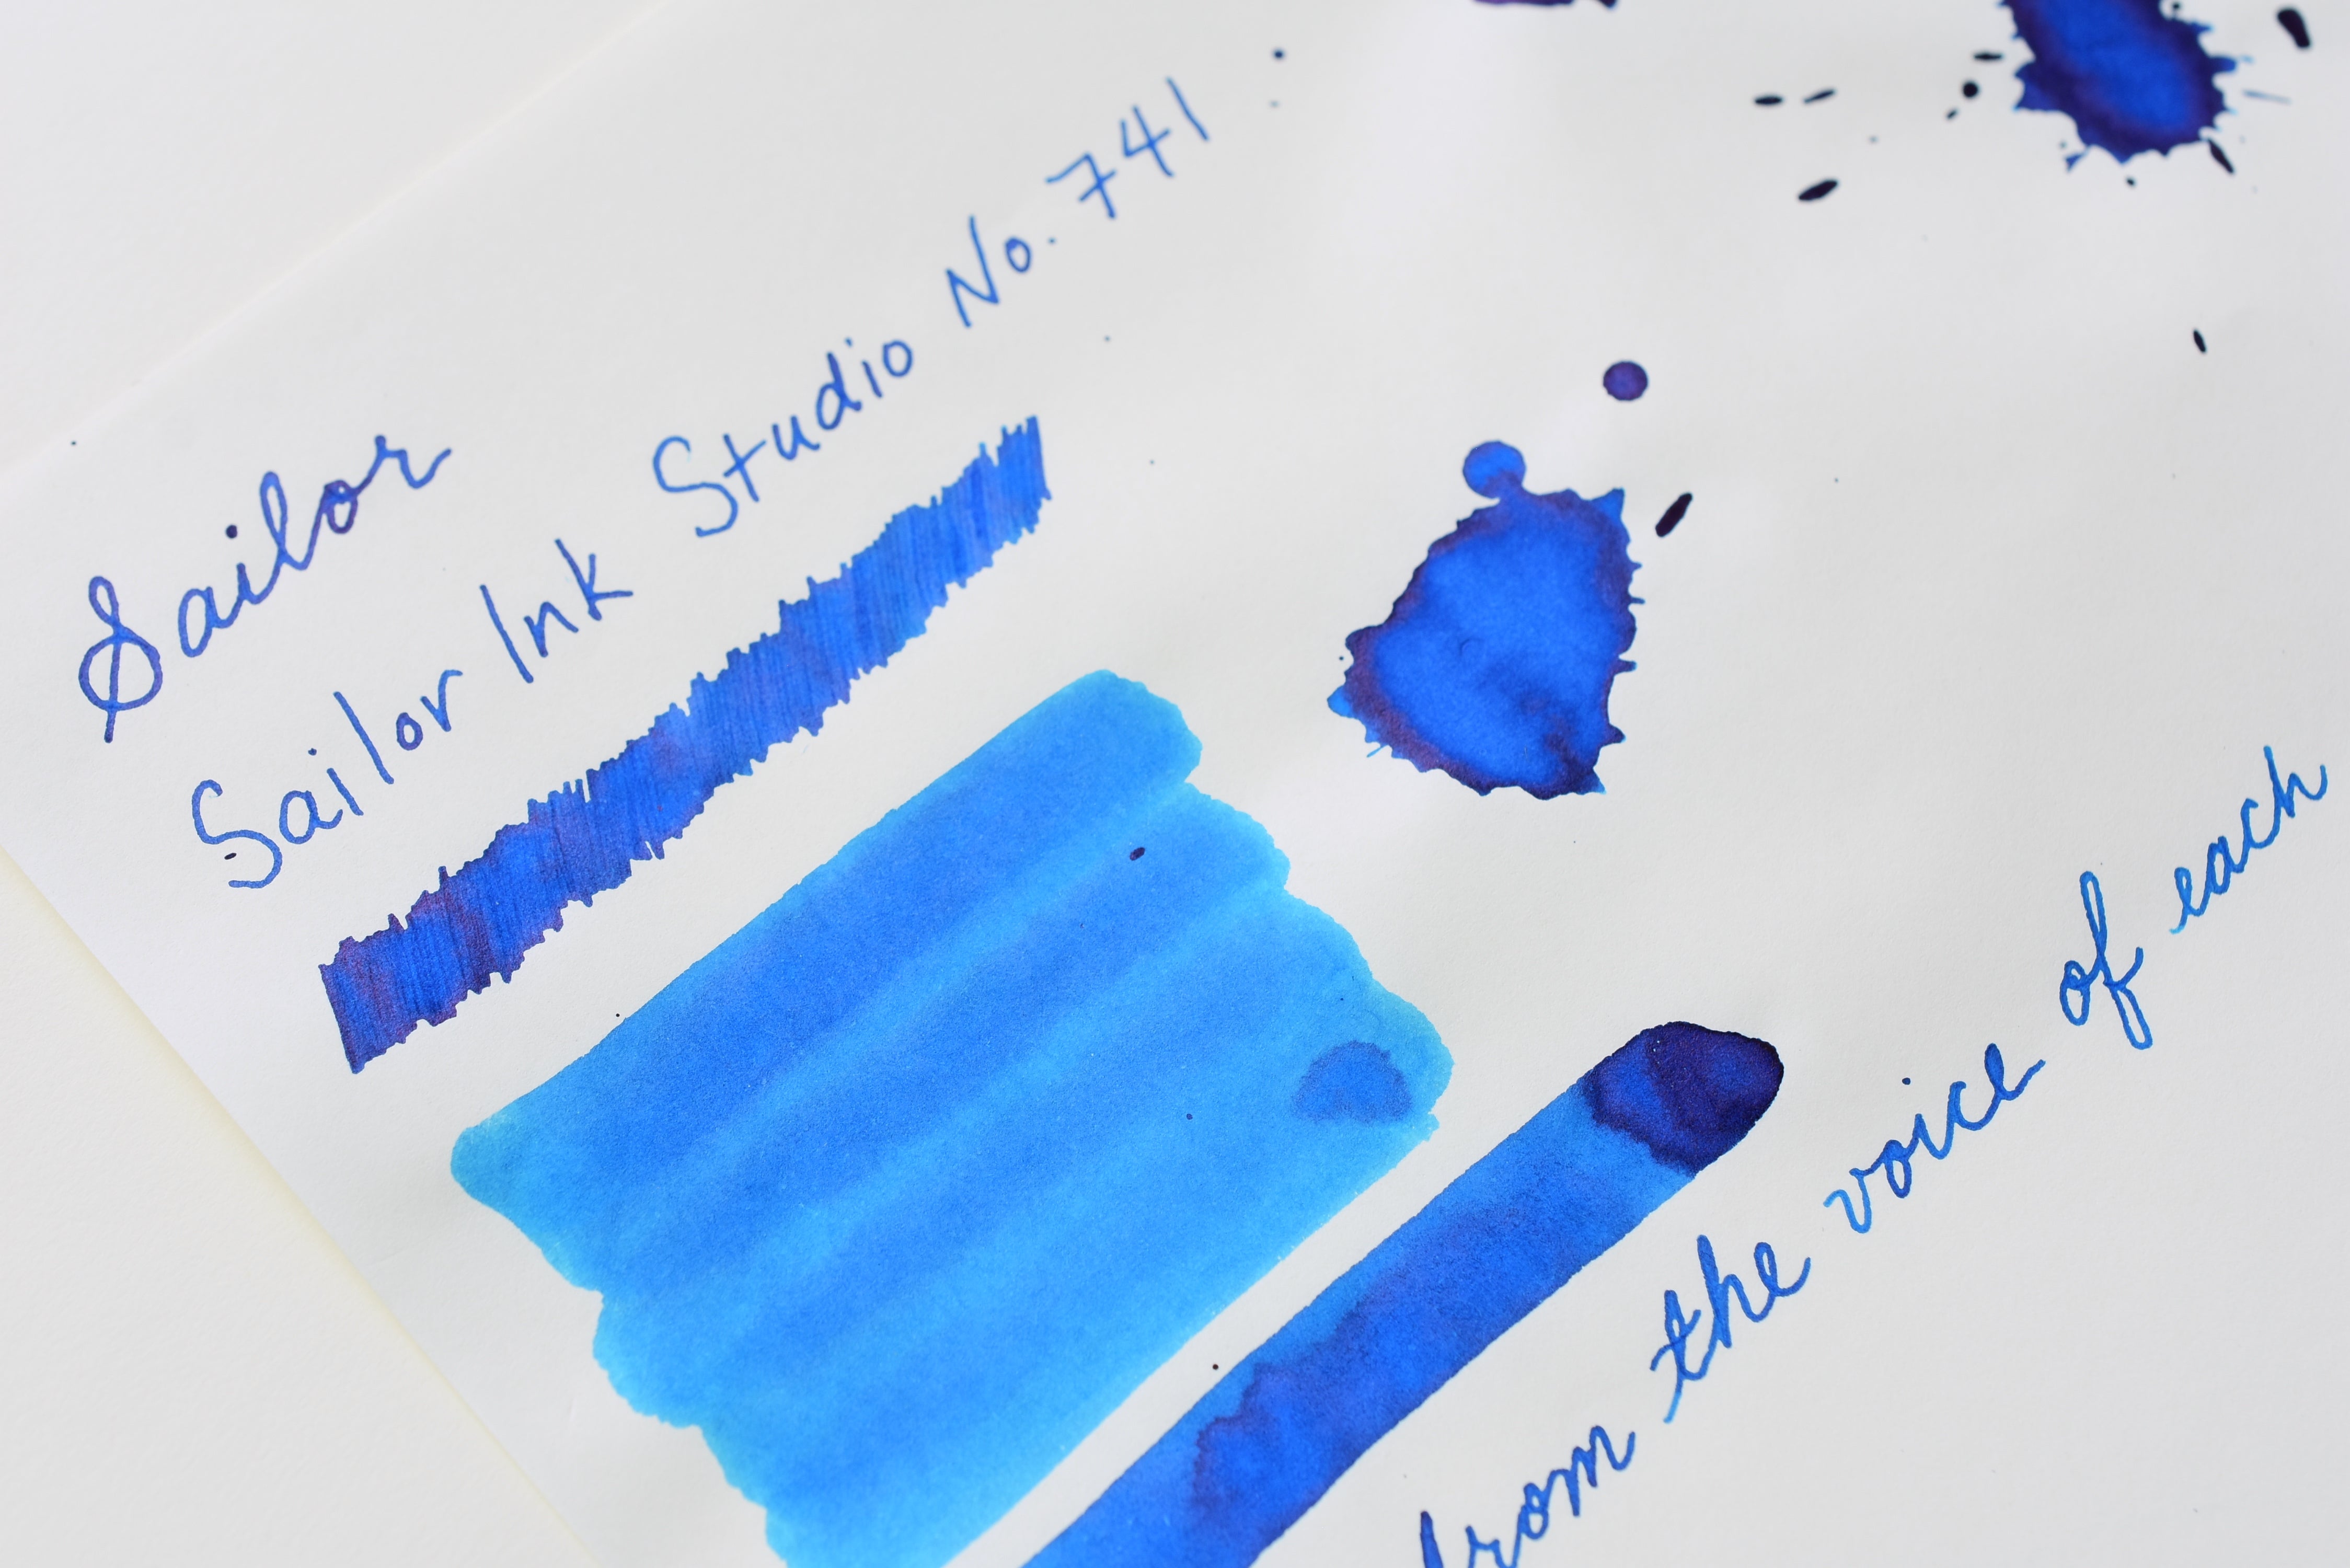 Sailor
Sailor Ink Studio No. 741
from the voice of each